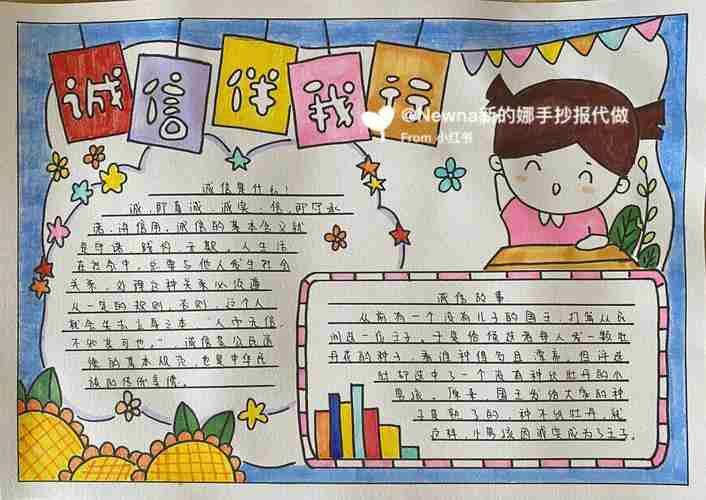 诚信伴我行
@Newna新的娜手抄报代做
From 小红书
诚信是什么!
诚,即真诚、诚实;信,即守承
诺、讲信用。诚信的基本含义就
是守诺、践约、无欺。人生活
在社会中,总要与他人发生社会
关系,处理这种关系必须遵
从一定的规则,否则,这个人
就会失去立身之本,"人而无信,
不知其可也。" 诚信是公民道
德的基本规范,也是中华民
族的传统美德。
诚信故事
从前有一个没有儿子的国王,打算从民
间选一位王子。于是给候选者每人发一颗牡
丹花的种子,看谁种得多且漂亮,但评选
时却选中了一个没有种出牡丹的小
男孩,原来,国王发给大家的种
子是熟了的,种不出牡丹,就
这样,小男孩因诚实成为了王子。